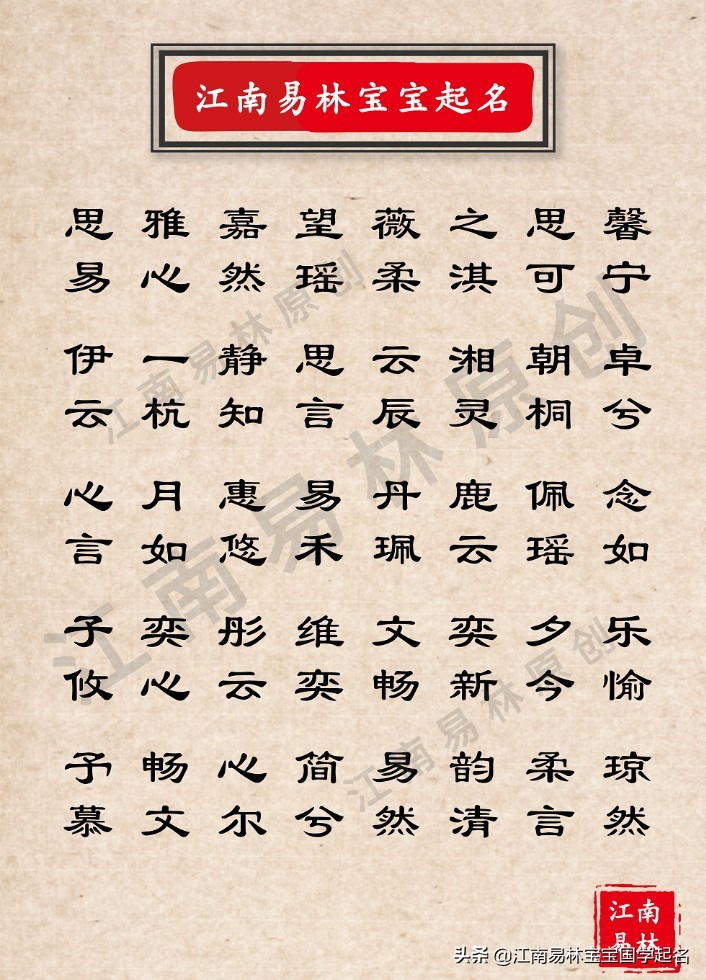 江南易林宝宝起名
思 雅 嘉 望 薇 之 思 馨
易 心 然 瑶 柔 淇 可 宁
伊 一 静 思 云 湘 朝 卓
云 杭 知 言 辰 灵 桐 兮
心 月 惠 易 丹 鹿 佩 念
言 如 悠 禾 珮 云 瑶 如
子 奕 彤 维 文 奕 夕 乐
攸 心 云 奕 畅 新 今 愉
予 畅 心 简 易 韵 柔 琼
慕 文 尔 兮 然 清 言 然
江南易林原创
江南易林原创
江南易林原创
江南
易林
头条 @江南易林宝宝国学起名